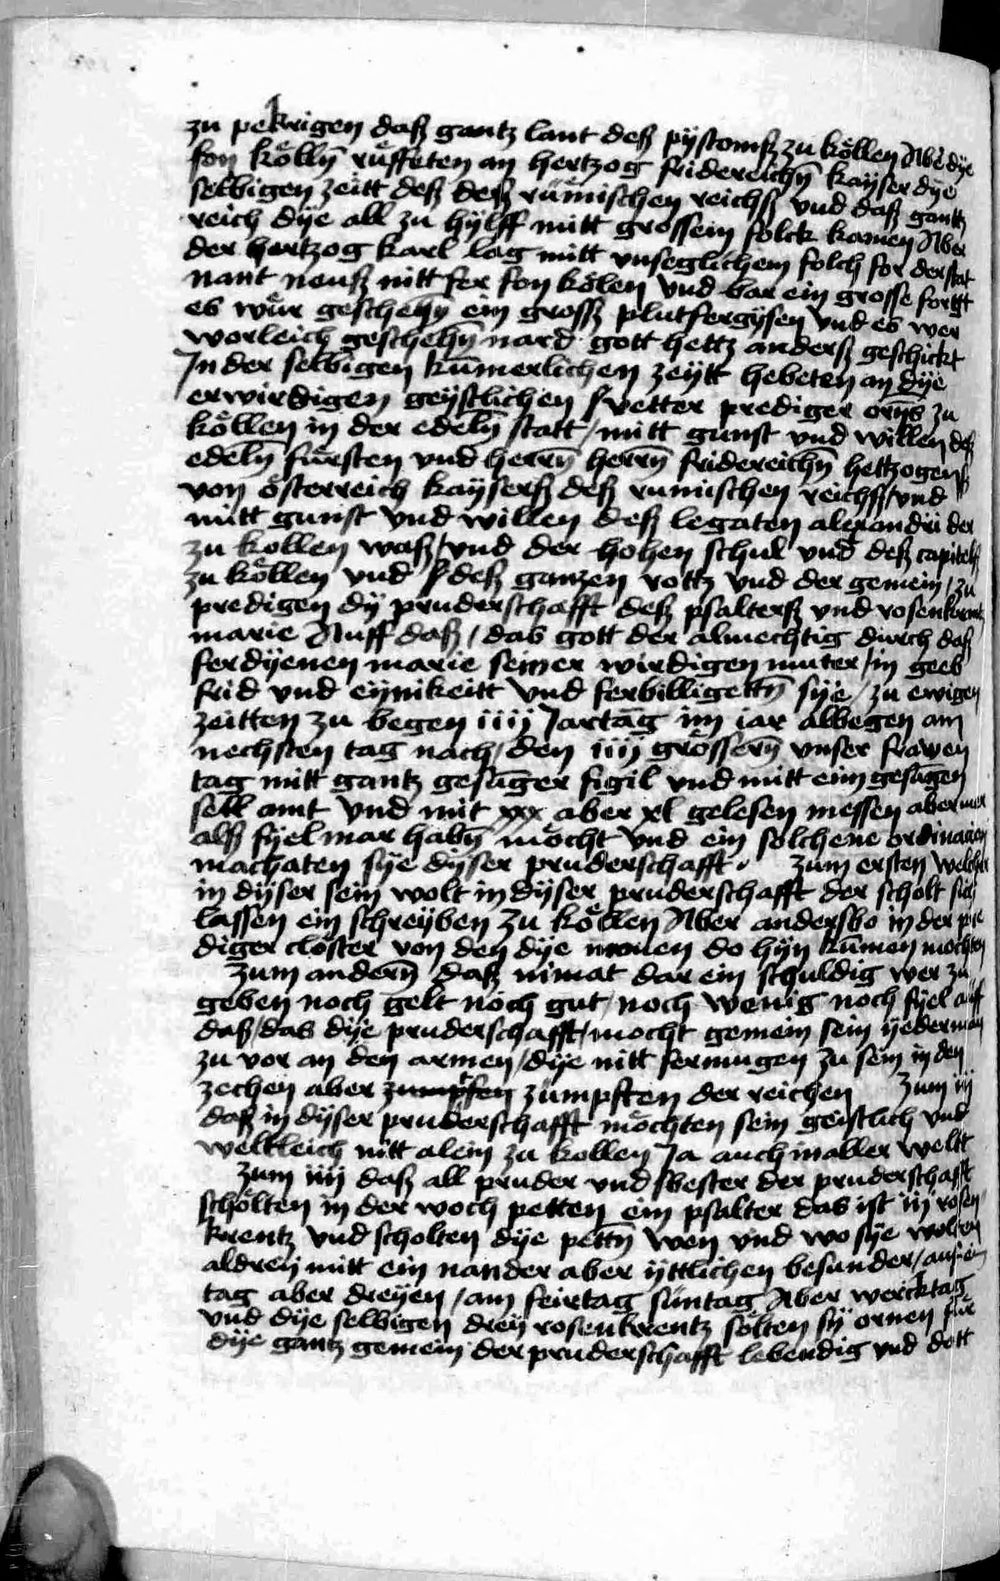 zu pekrigen daß gantz lant deß pystomß zu köllen Aber dye
fon kölln̄ rüfften an hertzog fridereichn̄ kayser dye
selbigen zeitt deß deß rümischen reichß vnd daß gantz
reich dye all zu hylff mitt grossem folck kamen Aber
der hertzog karl lag mitt vnseglichem folch for der stat
nant neuß nitt fer fon kölen vnd bar ein grosse forcht
es wür geschehn̄ ein groß plutfergysen vnd es wer
worleich geschehn̄ nard gott hettz anderß geschickt
In der selbigen kūmerlichen zeytt hebeten an dye
erwirdigen geystlichen vetter prediger orn̄s zu
köllen in der edeln̄ statt / mitt gunst vnd willen deß
edeln̄ fürsten vnd herrn̄ herrn̄ fridereichn̄ hettzogenß
von österreich kayserß deß rumischen reichß / vnd
mitt gunst vnd willen deß legaten alexandri der
zu kollen waß / vnd der hohen schul vnd deß capitelß
zu köllen vnd deß ganzen rottz vnd der gemein / zu
predigen dy pruderschafft deß psalterß vnd rosenkrantz
marie Auff daß / das gott der almechtig durch daß
ferdyenen marie seiner wirdigen muter / in geeb
frid vnd eynikeitt vnd ferbilligettn̄ sye / zu ewigen
zeitten zu begen iiij Jartāg im iar albegen am
nechsten tag nach / den iiij grössern̄ vnser frawen
tag mitt gantz gesūgner figil vnd mitt eim gesūgen
sell amt vnd mit xxx aber xl gelesen messen aber mer
alß fyel mar habn̄ möcht vnd ein solchene ordinacien
machaten sye dyser pruderschafft . Zum ersten welcher
in dyser sein wolt in dyser pruderschafft der scholt sich
lassen ein schreyben zu köllen Aber andersbo in der pre
diger clöster von den dye  do hyn kūmen mochten
Zum andern̄ daß nimat dar ein schuldig wer zu
geben noch gelt noch gut / noch wenig noch fyel auff
daß / das dye pruderschafft / mocht gemein sein yederman
zu vor an den armen / dye nitt fermugen zu sein in den
zechen aber zumpfen zümpften der reichen Zum iij
daß in dyser pruderschafft möchten sein geistlich vnd
weltleich nitt alein zu kollen Ja auch in aller weltt
Zum iiij daß all pruder vnd sbester der pruderschafft
schölten in der woch petten ein psalter das ist iij rosen
krentz vnd scholten dye pettn̄ wen vnd wo sye wolten
aldrey mitt ein nander aber yttlichen besunder / auff ein
tag aber dreyen / am feirtag suntag Aber wercktag
vnd dye selbigen drey rosenkrentz sölten sy ornen für
dye gantz gemein der pruderschafft lebendig vnd dott